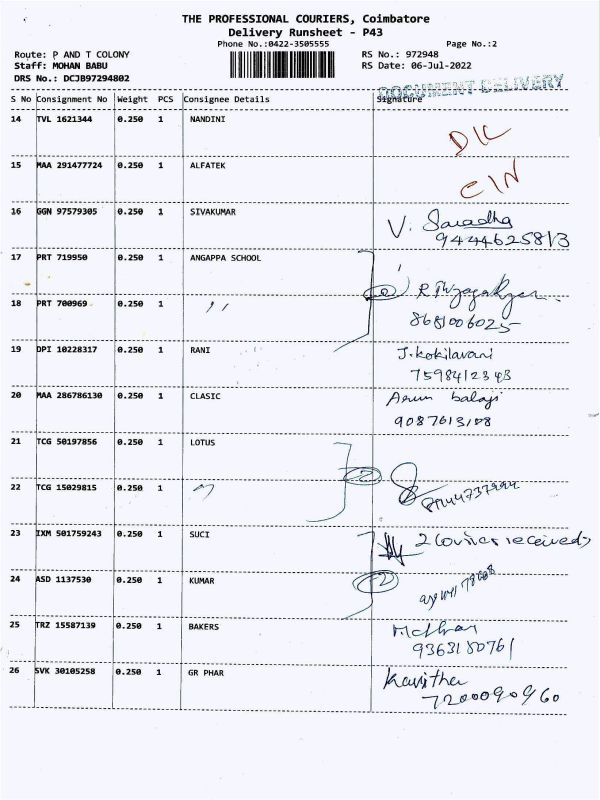 THE PROFESSIONAL COURIERS, Coimbatore
Delivery Runsheet - P43
Phone No.:0422-3505555 Page No.:2
Route: P AND T COLONY RS No.: 972948
Staff: MOHAN BABU RS Date: 06-Jul-2022
DRS No.: DCJB97294802
DOCUMENT DELIVERY
S No Consignment No Weight PCS Consignee Details Signature
14 TVL 1621344 0.250 1 NANDINI D/L
15 MAA 291477724 0.250 1 ALFATEK C/N
16 GGN 97579305 0.250 1 SIVAKUMAR V. Saradha
9444625813
17 PRT 719950 0.250 1 ANGAPPA SCHOOL
18 PRT 700969 0.250 1 〃 2
8681006025
19 DPI 10228317 0.250 1 RANI J.kokilavani
7598412343
20 MAA 286786130 0.250 1 CLASIC Arun balaji
9087613108
21 TCG 50197856 0.250 1 LOTUS
22 TCG 15029815 0.250 1 〃 2
23 IXM 501759243 0.250 1 SUCI 2 Couries received
24 ASD 1137530 0.250 1 KUMAR 2
25 TRZ 15587139 0.250 1 BAKERS
9363180761
26 SVK 30105258 0.250 1 GR PHAR Kavitha
7200090960